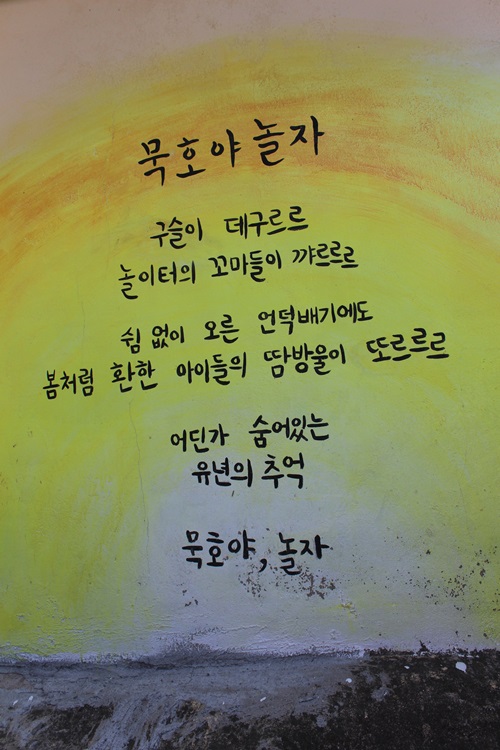 묵호야 놀자
구슬이 데구르르
놀이터의 꼬마들이 꺄르르르
쉼 없이 오른 언덕배기에도
봄처럼 환한 아이들의 땀방울이 또르르르
어딘가 숨어있는
유년의 추억
묵호야, 놀자